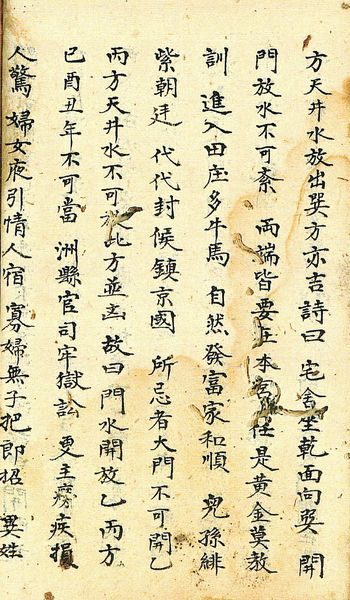 方天井水放出巽方亦吉詩曰 宅舍坐乾面向巽 開
門放水不可紊 兩端皆要在本宮 任是黃金莫教
訓 進入田庄多牛馬 自然發富家和順 兒孫緋
紫朝廷 代代封候鎮京國 所忌者大門不可開乙
丙方天井水不可放此方並凶 故曰門水開放乙丙方
巳酉丑年不可當 洲縣官司牢獄訟 更主癆疾損
人驚 婦女夜引情人宿 寡婦無子把郎招 異姓